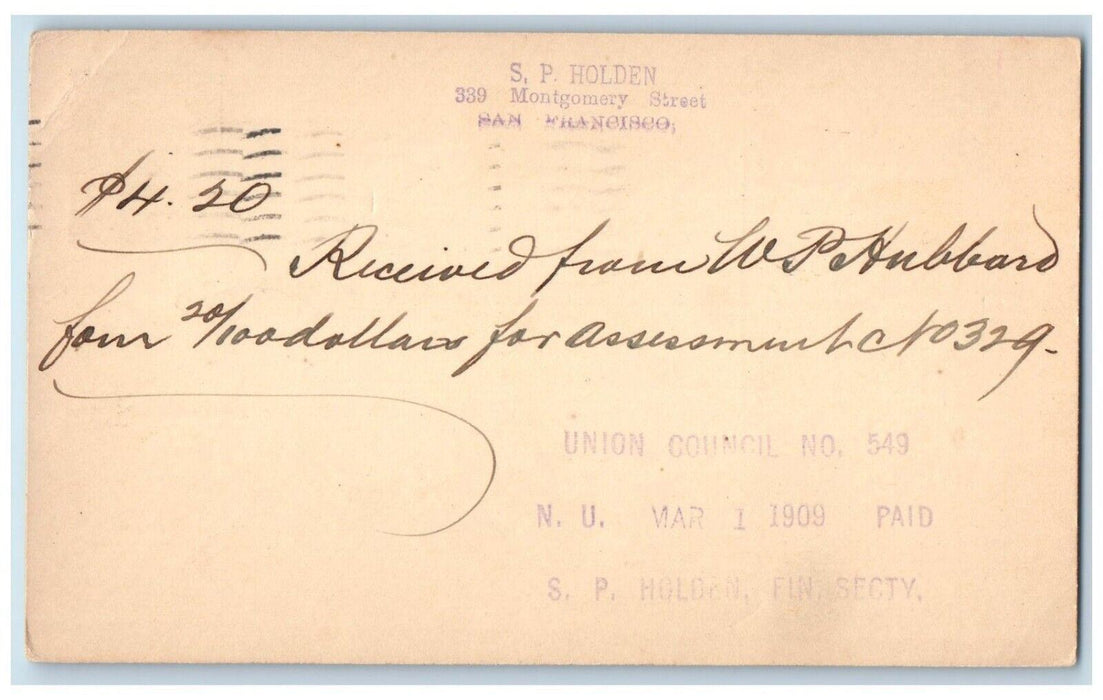 S. P. HOLDEN
339 Montgomery Street
SAN FRANCISCO,
$4.20
Received from W P Hubbard
four 20/100 dollars for assessment No 329.
UNION COUNCIL NO. 549
N. U. MAR 1 1909 PAID
S. P. HOLDEN, FIN. SECTY.